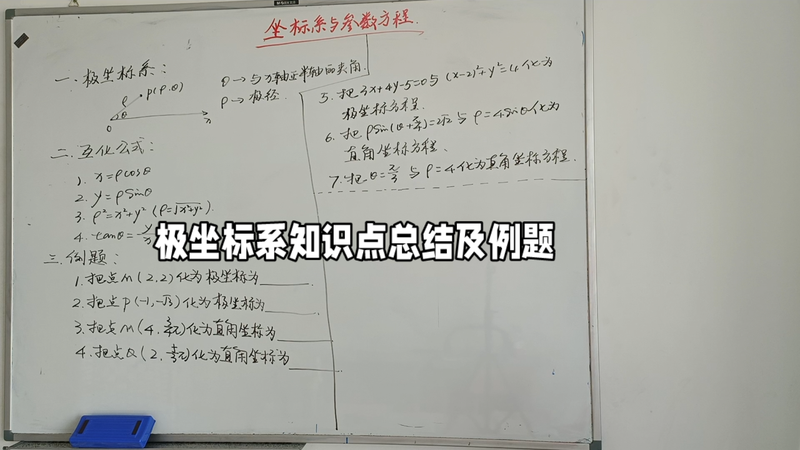 坐标系与参数方程.
一.极坐标系:
ρ P(ρ,θ)
θ
O x
θ→与x轴正半轴的夹角.
ρ→极径.
二.互化公式:
1. x=ρcosθ
2. y=ρsinθ
3. ρ²=x²+y² (ρ=√x²+y²).
4. tanθ=y/x
三.例题:
1.把点M(2,2)化为极坐标为
2.把点P(-1,-√3)化为极坐标为
3.把点M(4, π)化为直角坐标为
4.把点Q(2, π)化为直角坐标为
5.把3x+4y-5=0与(x-2)²+y²=4化为
极坐标方程.
6.把ρsin(θ+)=2√2与ρ=4sinθ化为
直角坐标方程、
7.把θ=与ρ=4化为直角坐标方程.
极坐标系知识点总结及例题